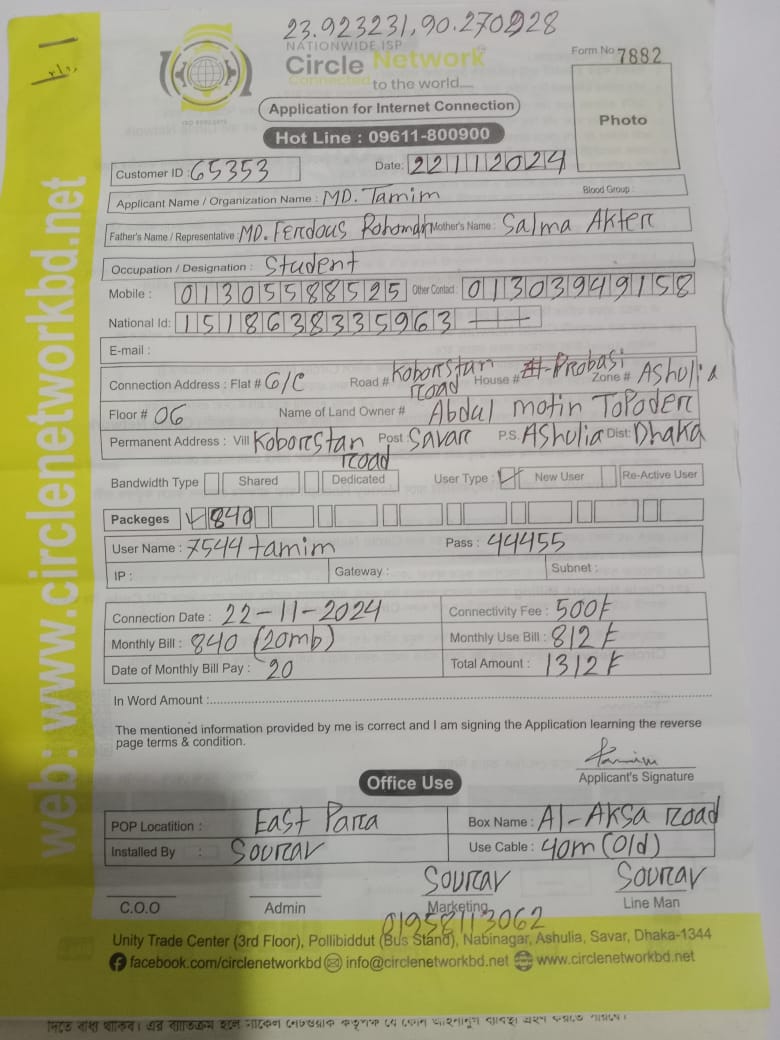 23.923231,90.270928
NATIONWIDE ISP
Circle Network
Connected to the world....
Form No 7882
Photo
Application for Internet Connection
Hot Line : 09611-800900
Customer ID : 65353 Date: 22112024
Applicant Name / Organization Name : MD. Tamim Blood Group :
Father's Name / Representative MD. Ferdous Mother's Name : Salma Akter
Occupation / Designation : Student
Mobile : 01305588525 Other Contact : 01303949158
National Id: 1518638335963
E-mail :
Connection Address : Flat # G/C Road # Koborstan road House # Probasi Zone # Ashulia
Floor # 06 Name of Land Owner # Abdul motin Topoder
Permanent Address : Vill Koborstan road Post : Savar P.S. Ashulia Dist: Dhaka
Bandwidth Type Shared Dedicated User Type : New User Re-Active User
Packeges 840
User Name : 7544 tamim Pass : 44455
IP : Gateway : Subnet :
Connection Date : 22-11-2024 Connectivity Fee : 500৳
Monthly Bill : 840 (20mb) Monthly Use Bill : 812 ৳
Date of Monthly Bill Pay : 20 Total Amount : 1312 ৳
In Word Amount :
The mentioned information provided by me is correct and I am signing the Application learning the reverse
page terms & condition.
Tamim
Applicant's Signature
Office Use
POP Locatition : East Para Box Name : Al-Aksa road
Installed By : Sourav Use Cable : 40m (old)
Sourav Sourav
C.O.O Admin Marketing Line Man
01958113062
Unity Trade Center (3rd Floor), Pollibiddut (Bus Stand), Nabinagar, Ashulia, Savar, Dhaka-1344
facebook.com/circlenetworkbd info@circlenetworkbd.net www.circlenetworkbd.net
web: www.circlenetworkbd.net